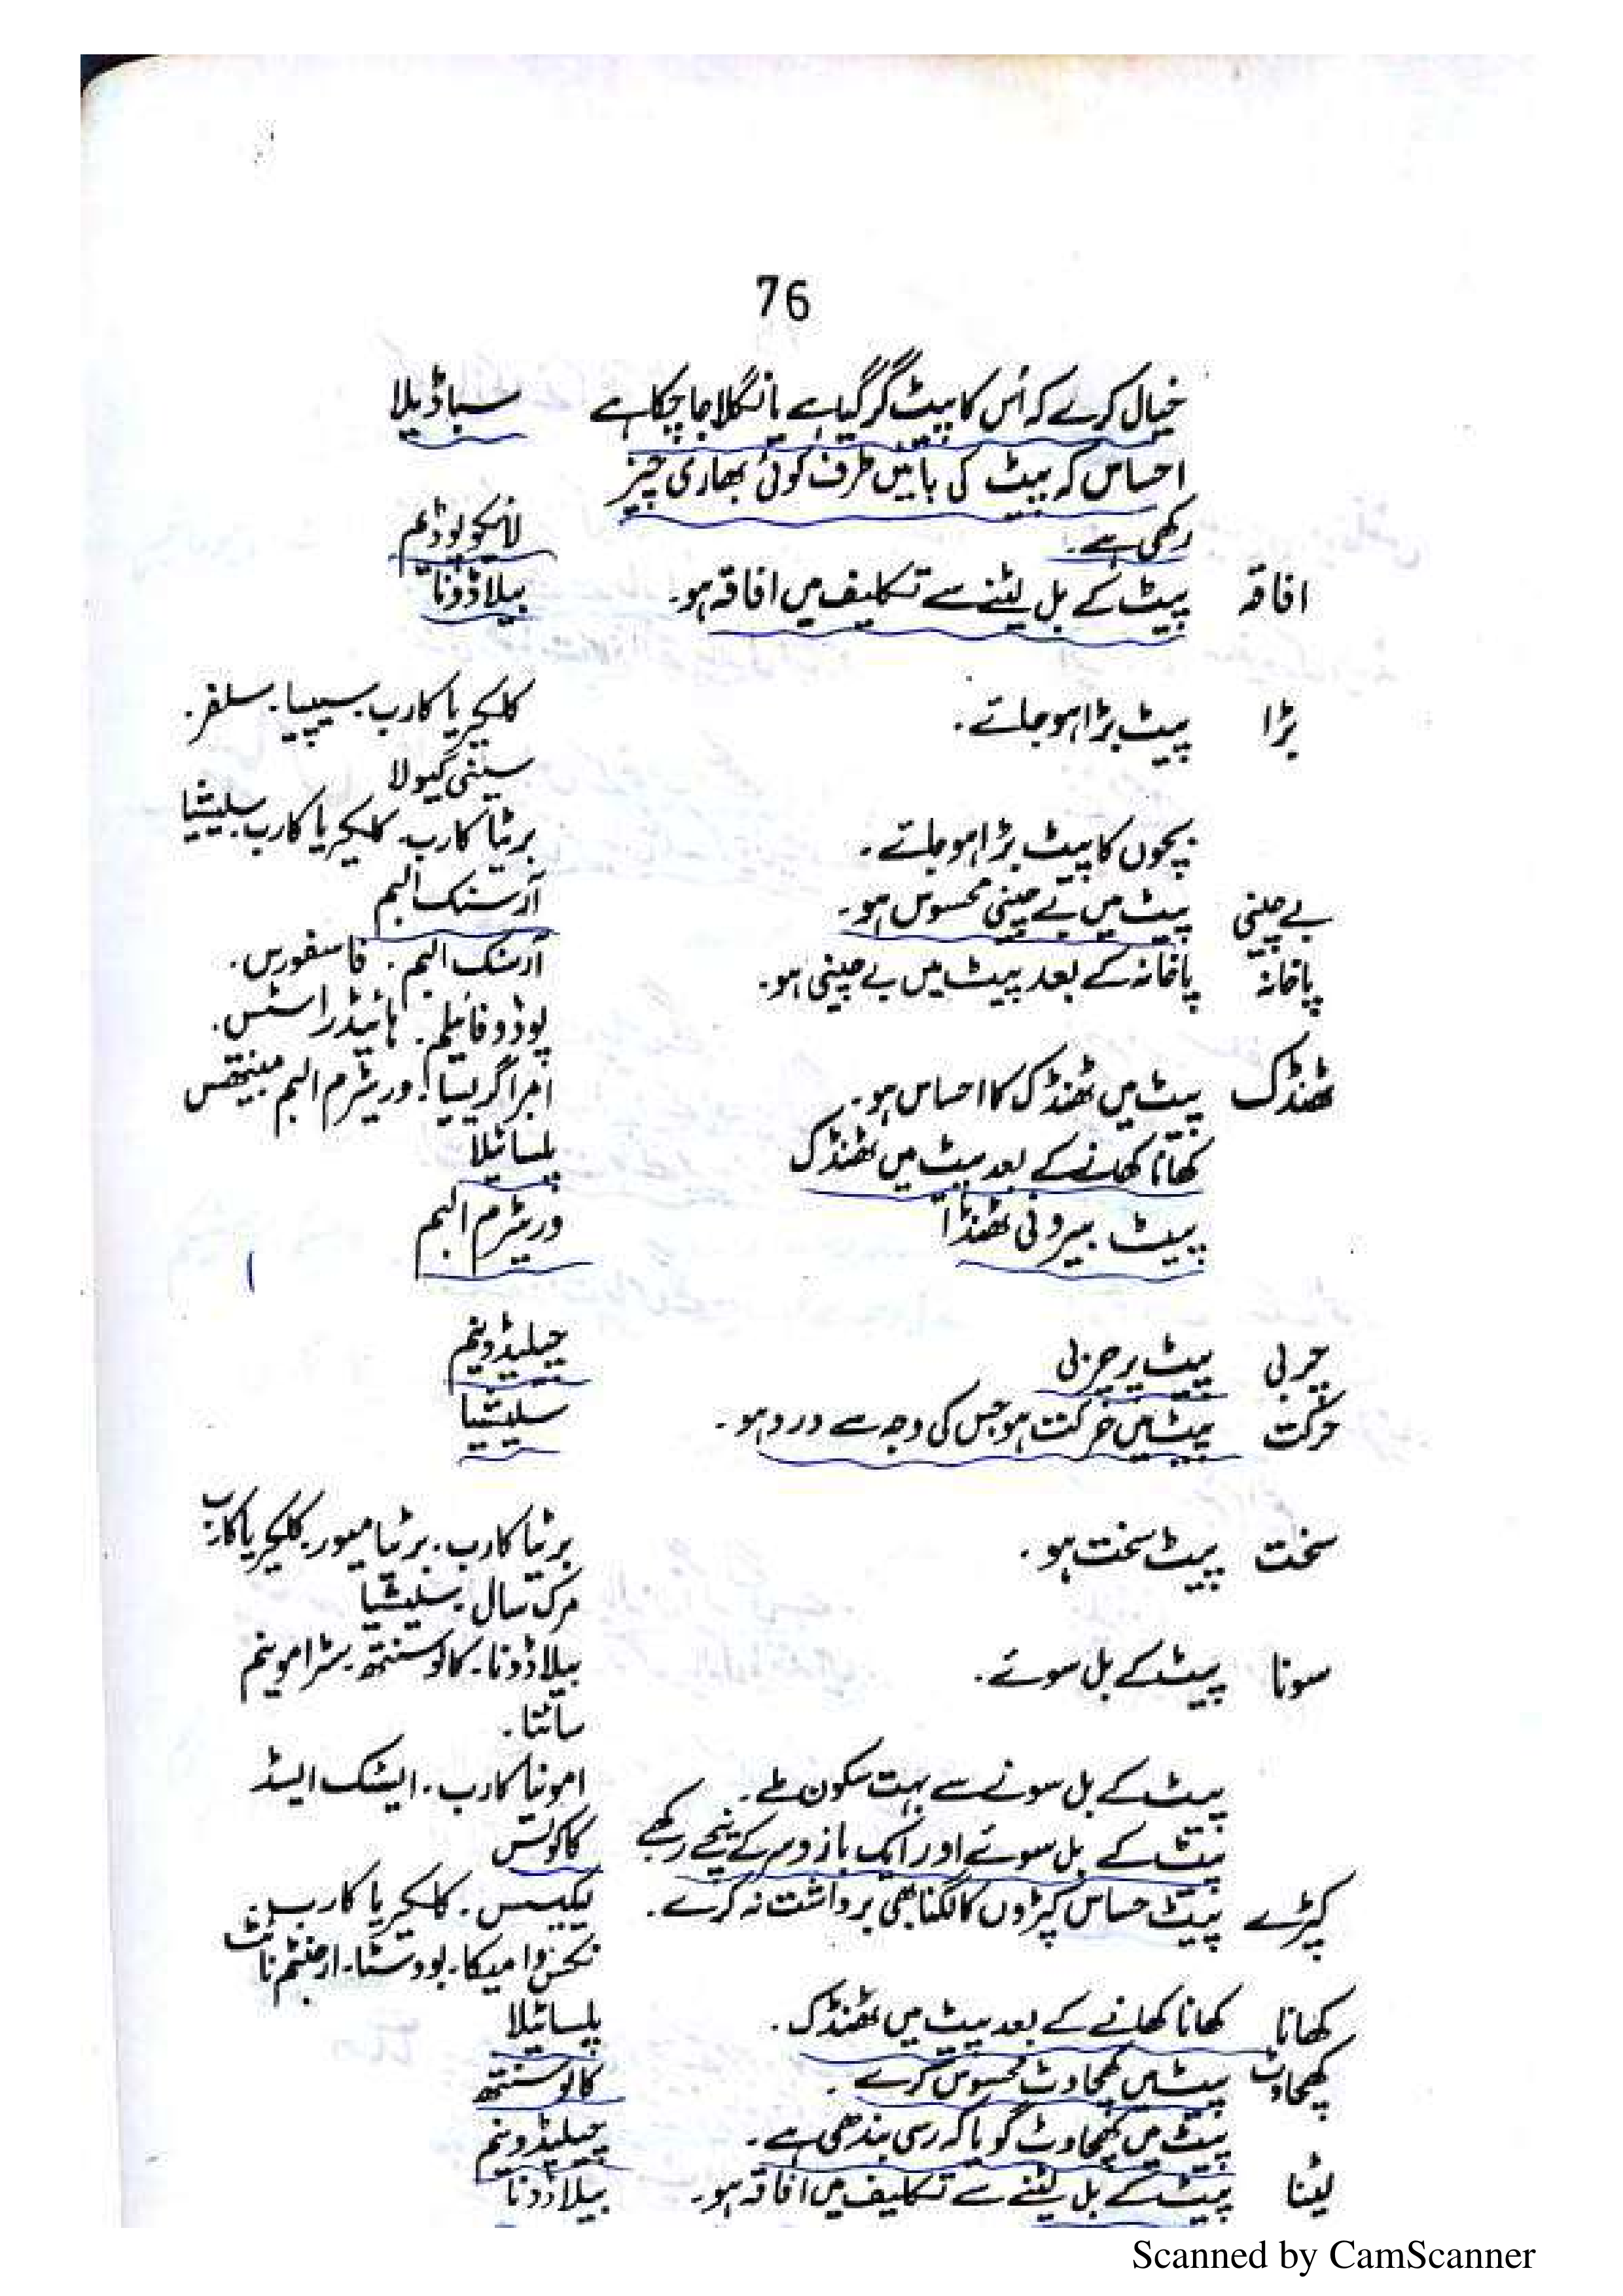 76
خیال کرے کہ اُس کا پیٹ گر گیا ہے یا نگلا جا چکا ہے سباڈیلا
احساس کہ پیٹ کی بائیں طرف کوئی بھاری چیز
رکھی ہے۔ لائیکوپوڈیم
افاقہ پیٹ کے بل لیٹنے سے تکلیف میں افاقہ ہو۔ بیلاڈونا
بڑا پیٹ بڑا ہو جائے۔ کلکیریا کارب۔ سیپیا۔ سلفر۔
سینی گیولا
بچوں کا پیٹ بڑا ہو جائے۔ برٹیا کارب۔ کلکیریا کارب۔ سلیشیا
بے چینی پیٹ میں بے چینی محسوس ہو۔ آرسنک البم
پاخانہ پاخانہ کے بعد پیٹ میں بے چینی ہو۔ آرسنک البم۔ فاسفورس۔
پوڈوفائیلم۔ ہائیڈراسٹس۔
ٹھنڈک پیٹ میں ٹھنڈک کا احساس ہو۔ امبراگریسیا۔ وریٹرم البم مینتھس
کھانا کھانے کے بعد پیٹ میں ٹھنڈک پلساٹیلا
پیٹ بیرونی ٹھنڈا وریٹرم البم
چربی پیٹ پر چربی چیلیڈونیم
حرکت پیٹ میں حرکت ہو جس کی وجہ سے درد ہو۔ سلیشیا
سخت پیٹ سخت ہو۔ برٹیا کارب۔ برٹیا میور۔ کلکیریا کارب
مرک سال۔ سلیشیا
سونا پیٹ کے بل سوئے۔ بیلاڈونا۔ کالوسنتھ۔ سٹرامونیم
سائنا۔
پیٹ کے بل سونے سے بہت سکون ملے۔ امونیا کارب۔ ایسٹک ایسڈ
پیٹ کے بل سوئے اور ایک بازو سر کے نیچے رکھے کاکولس
کپڑے پیٹ حساس کپڑوں کا لگنا بھی برداشت نہ کرے۔ لیکیسس۔ کلکیریا کارب۔
نکس وامیکا۔ بووسٹا۔ ارجنٹم نائٹ
کھانا کھانا کھانے کے بعد پیٹ میں ٹھنڈک۔ پلساٹیلا
کھچاوٹ پیٹ میں کھچاوٹ محسوس کرے۔ کالوسنتھ
پیٹ میں کھچاوٹ گویا کہ رسی بندھی ہے۔ چیلیڈونیم
لیٹنا پیٹ کے بل لیٹنے سے تکلیف میں افاقہ ہو۔ بیلاڈونا
Scanned by CamScanner